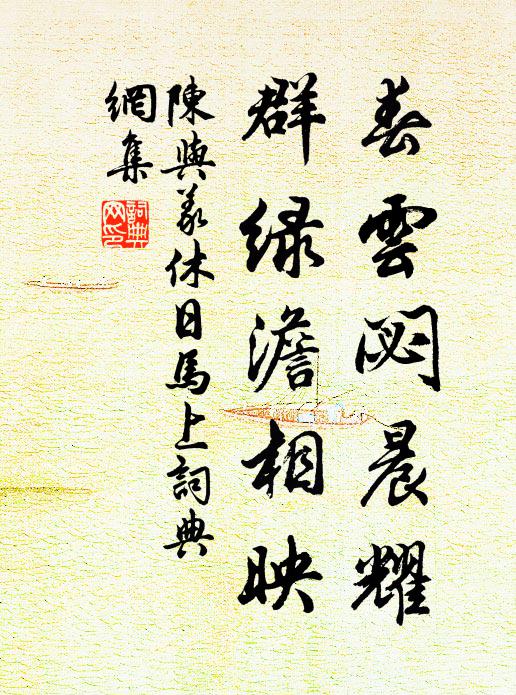 春雲閟晨耀
群緑澹相映
陳與義休日馬上詞典
網集
詞典
网印